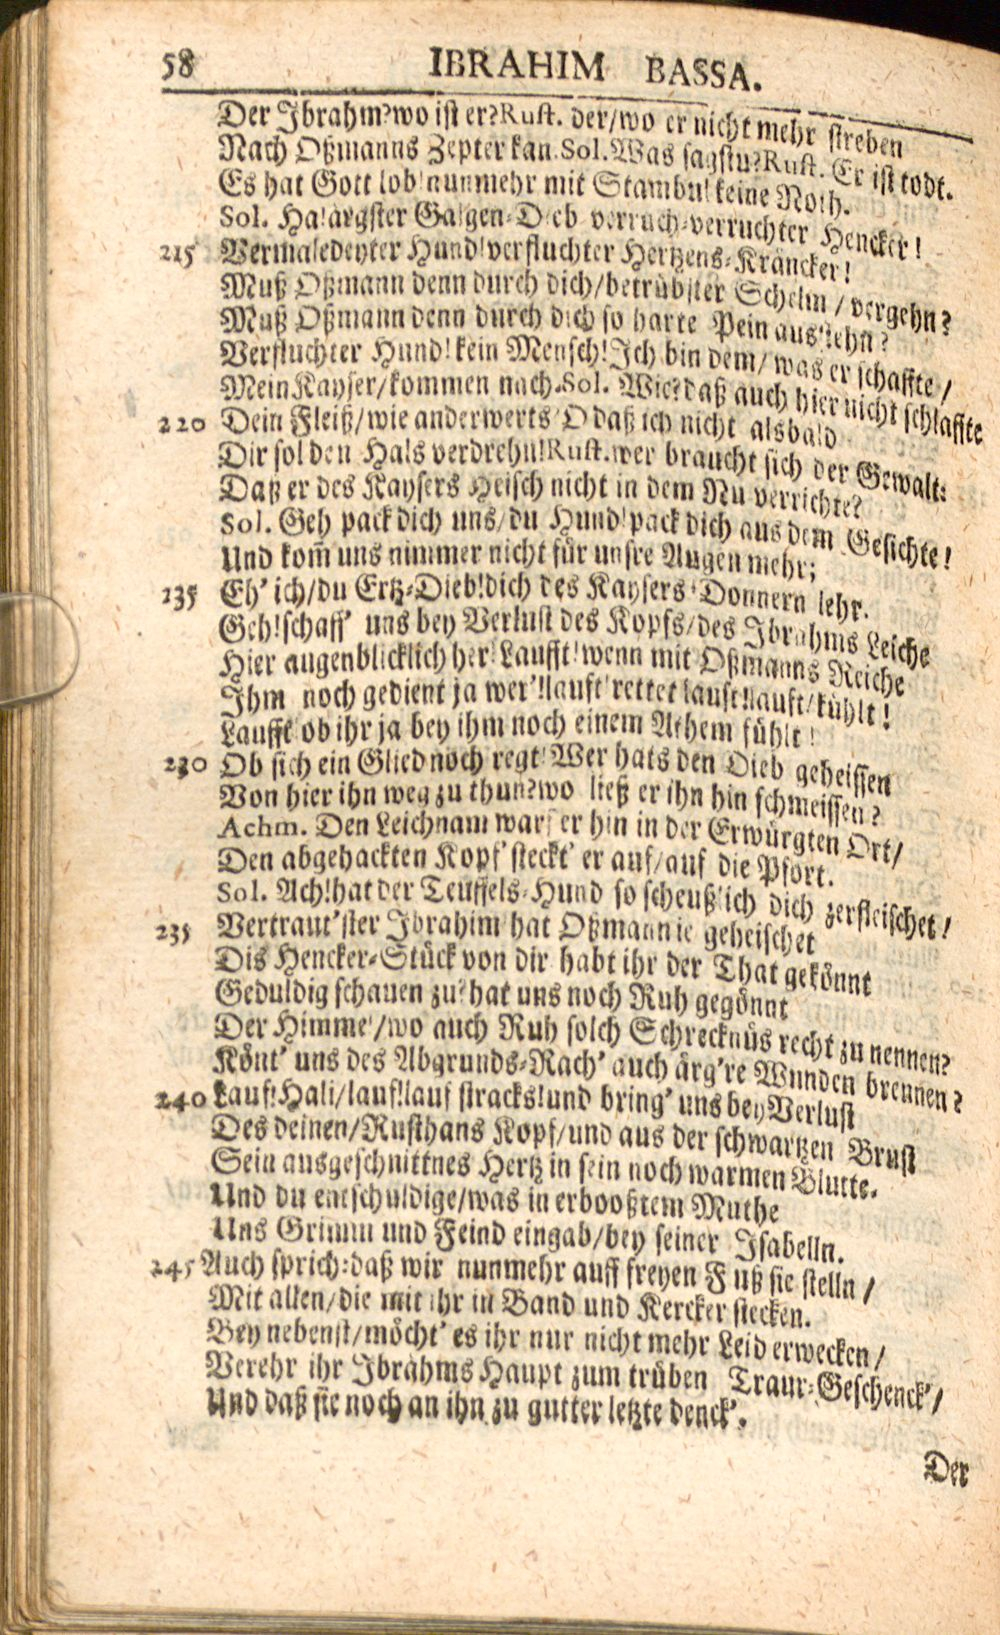 58 IBRAHIM BASSA.
Der Jbrahm?wo ist er?Rust. der/wo er nicht mehr streben
Nach Oßmanns Zepter kan.Sol.Was sagstu?Rust. Er ist todt.
Es hat Gott lob!nunmehr mit Stambul keine Noth.
Sol. Ha!ärgster Galgen-Dieb verruch-verruchter Hencker!
215 Vermaledeyter Hund!verfluchter Hertzens-Kräncker!
Muß Oßmann denn durch dich/betrübster Schelm / vergehn?
Muß Oßmann denn durch dich so harte Pein ausstehn?
Verfluchter Hund! kein Mensch!Jch bin dem/ was er schaffte /
Mein Kayser/kommen nach.Sol. Wie?daß auch hier nicht schlaffte
220 Dein Fleiß/wie anderwerts!O daß ich nicht alsbald
Dir sol den Hals verdrehn!Rust.wer braucht sich der Gewalt:
Daß er des Kaysers Heisch nicht in dem Nu verrichte?
Sol. Geh pack dich uns/du Hund!pack dich aus dem Gesichte!
Und kom̃ uns nimmer nicht für unsre Augen mehr;
235 Eh' ich/du Ertz-Dieb!dich des Kaysers Donnern lehr.
Geh!schaff' uns bey Verlust des Kopfs/des Jbrahms Leiche
Hier augenblicklich her!Laufft!wenn mit Oßmanns Reiche
Jhm noch gedient ja wer'!lauft!rettet!lauft!lauft/kühlt!
Laufft!ob ihr ja bey ihm noch einem Athem fühlt!
230 Ob sich ein Glied noch regt!Wer hats den Dieb geheissen
Von hier ihn weg zu thun?wo ließ er ihn hin schmeissen?
Achm. Den Leichnam warf er hin in der Erwürgten Ort/
Den abgehackten Kopf steckt' er auf/auf die Pfort.
Sol. Ach!hat der Teuffels-Hund so scheußlich dich zerfleischet!
235 Vertraut'ster Jbrahim!hat Oßmann ie geheischet
Dis Hencker-Stück von dir habt ihr der That gekönnt
Geduldig schauen zu?hat uns noch Ruh gegönnt
Der Himmel/wo auch Ruh solch Schrecknüs recht zu nennen?
Könt' uns des Abgrunds-Rach' auch ärg're Wunden brennen?
240 Lauf!Hali/lauf!lauf stracks!und bring' uns bey Verlust
Des deinen/Rusthans Kopf/und aus der schwartzen Brust
Sein ausgeschnittnes Hertz in sein noch warmen Blutte.
Und du entschuldige/was in erbooßtem Muthe
Uns Grimm und Feind eingab/bey seiner Jsabelln.
245 Auch sprich:daß wir nunmehr auff freyen Fuß sie stelln /
Mit allen/die mit ihr in Band und Kercker stecken.
Bey nebenst/möcht' es ihr nur nicht mehr Leid erwecken /
Verehr ihr Jbrahms Haupt zum trüben Traur-Geschenck'/
Und daß sie noch an ihn zu gutter letzte denck'.
Der